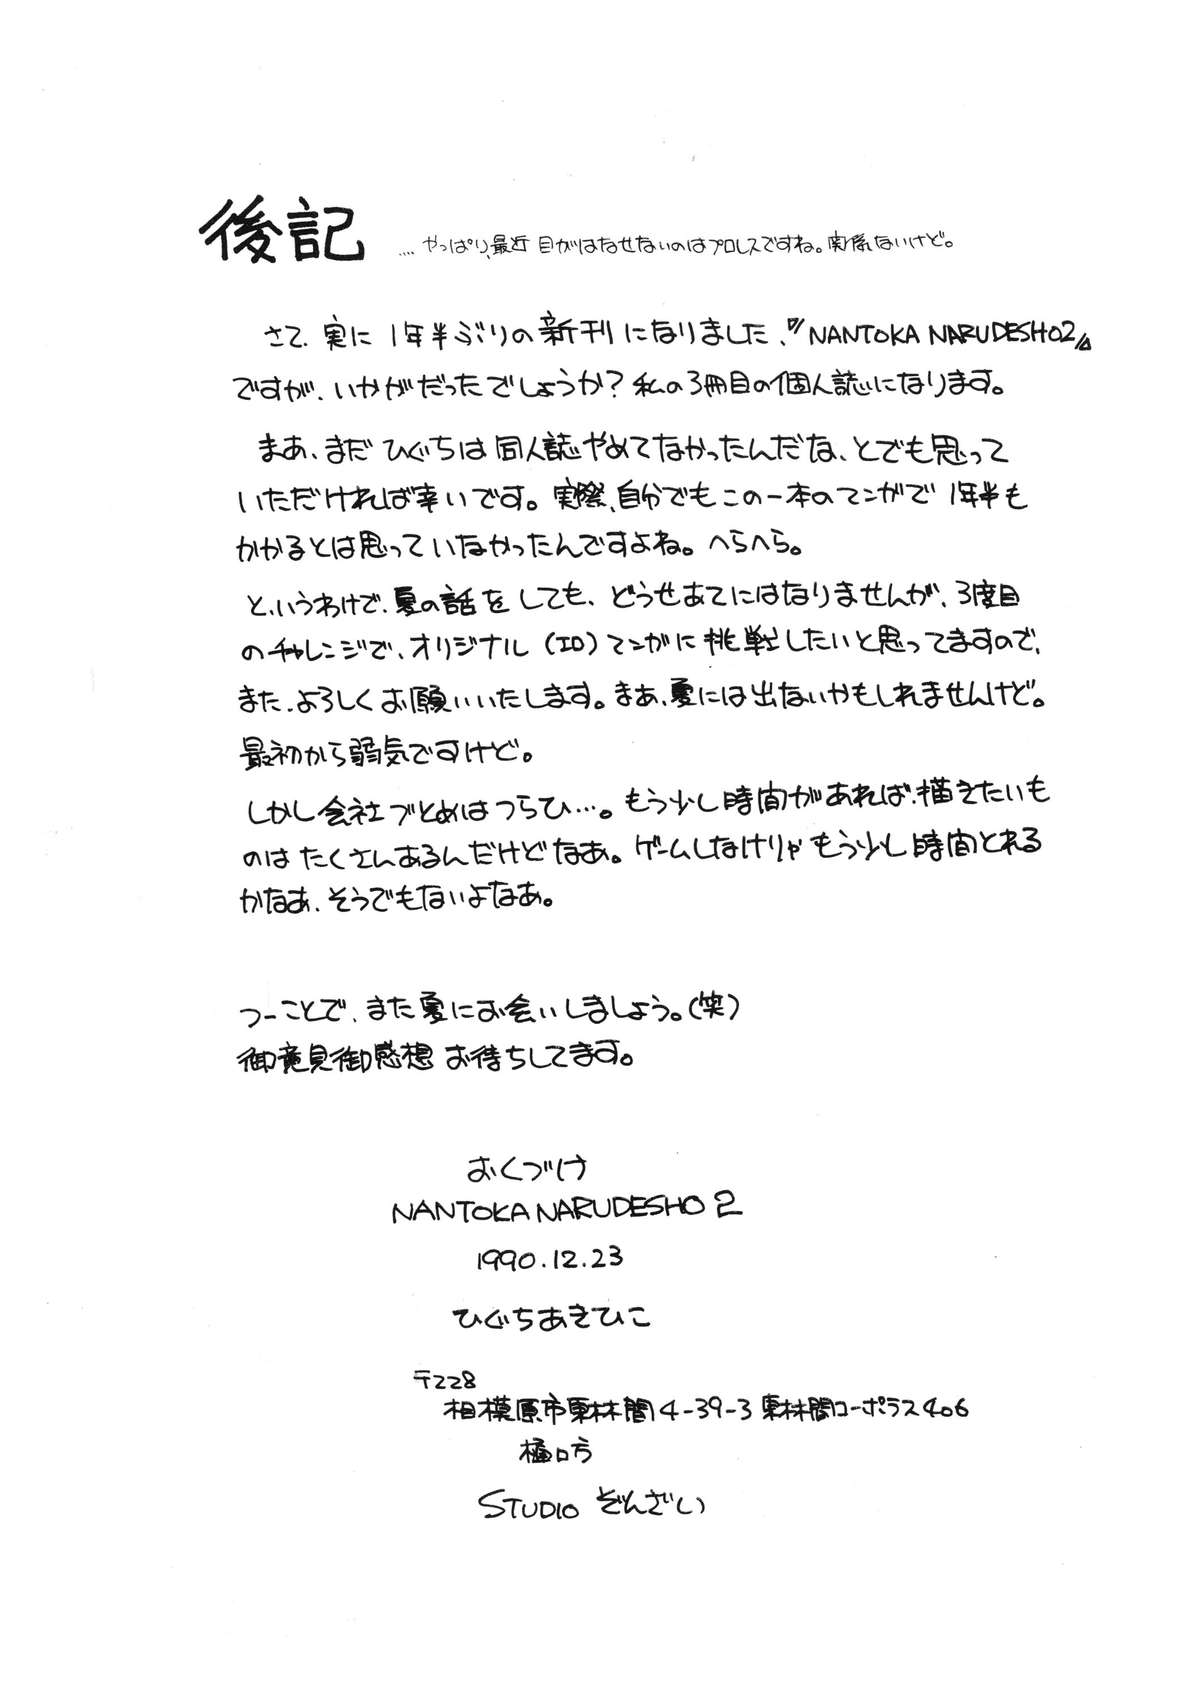 後記 ....やっぱり、最近 目がはなせないのはプロレスですね。関係ないけど。
さて、実に 1年半ぶりの新刊になりました、『NANTOKA NARUDESHO2』
ですが、いかがだったでしょうか？私の3冊目の個人誌になります。
まあ、まだ ひぐちは同人誌やめてなかったんだな、とでも思って
いただければ幸いです。実際、自分でもこの一本のマンガで 1年半も
かかるとは思っていなかったんですよね。へらへら。
と、いうわけで、夏の話をしても、どうせあてにはなりませんが、3度目
のチャレンジで、オリジナル (エロ) マンガに挑戦したいと思ってますので、
また、よろしくお願いいたします。まあ、夏には出ないかもしれませんけど。
最初から弱気ですけど。
しかし会社づとめはつらひ…。もう少し時間があれば、描きたいも
のは たくさんあるんだけどなあ。ゲームしなけりゃ もう少し時間とれる
かなあ、そうでもないよなあ。
つーことで、また夏にお会いしましょう。(笑)
御意見御感想 お待ちしてます。
おくづけ
NANTOKA NARUDESHO 2
1990.12.23
ひぐちあきひこ
〒228
相模原市東林間4-39-3 東林間コーポラス406
樋口方
STUDIO ぞんざい